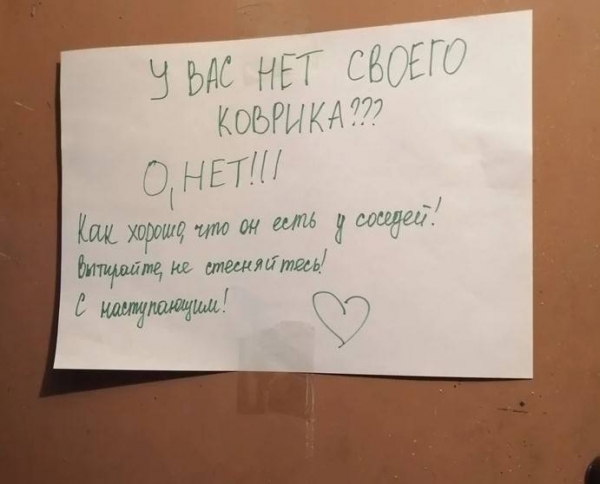 У ВАС НЕТ СВОЕГО
КОВРИКА???
О, НЕТ!!!
Как хорошо, что он есть у соседей!
Вытирайте, не стесняйтесь!
С наступающим!